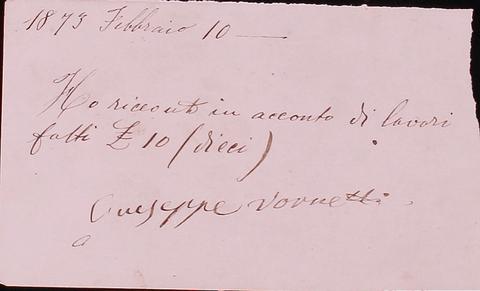 1873 Febbraio 10 —
Ho ricevuto in acconto di lavori
fatti £ 10 (dieci)
Giuseppe